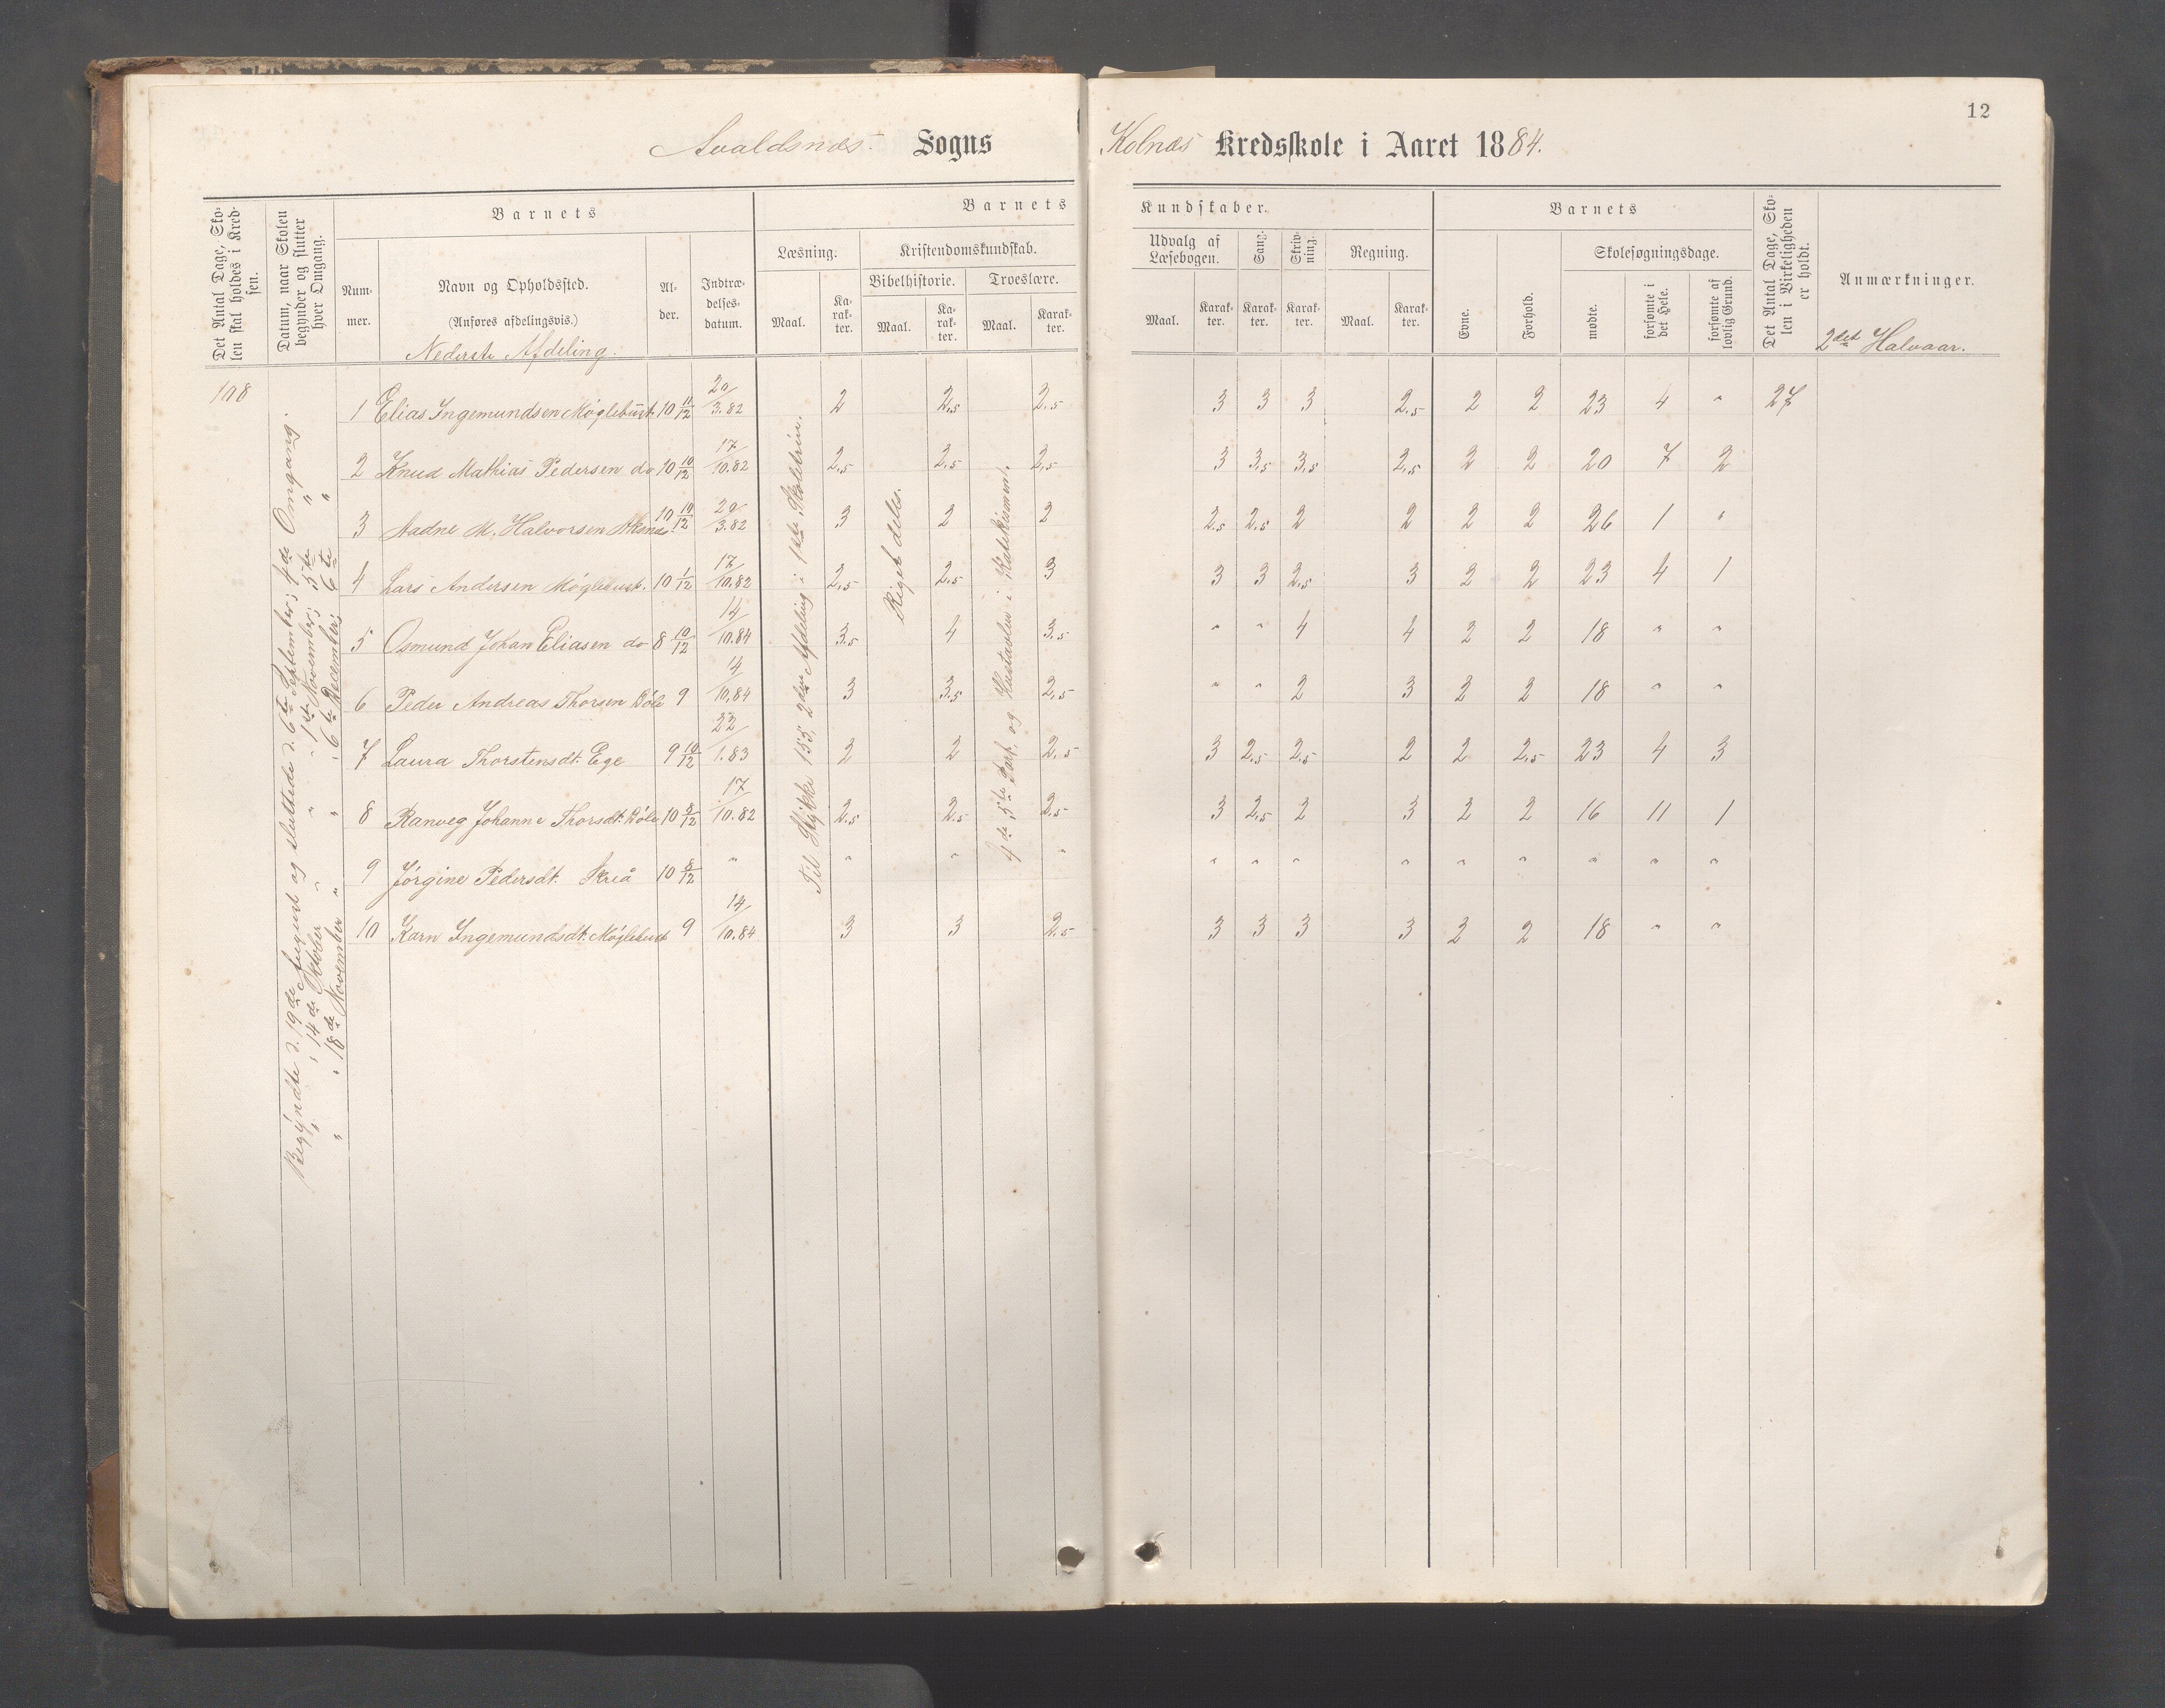 12
Avaldsnæs Sogns Kolnæs Kredsskole i Aaret 1884.
Det Antal Dage, Skolen skal holdes i Kredsen.
Datum, naar Skolen begynder og slutter hver Omgang.
Barnets
Nummer.
Navn og Opholdssted.
(Anføres afdelingsvis.)
Nederste Afdeling.
Alder.
Indtrædelsesdatum.
Barnets Kundskaber.
Læsning.
Maal.
Karakter.
Kristendomskundskab.
Bibelhistorie.
Maal.
Karakter.
Troeslære.
Maal.
Karakter.
Udvalg af Læsebogen.
Maal.
Karakter.
Sang.
Karakter.
Skrivning.
Karakter.
Regning.
Maal.
Karakter.
Barnets
Evne.
Forhold.
Skolesøgningsdage.
mødte.
forsømte i det Hele.
forsømte af lovlig Grund.
Det Antal Dage, Skolen i Virkeligheden er holdt.
Anmærkninger.
2det Halvaar.
108
Begyndte d. 19de August og sluttede d. 6te September; 4de Omgang.
" " 14de October " " " 1ste November; 5te "
" " 18de November " " " 6te December; 6te "
Til Stykke 155, 2den Afdeling i 1ste Skoletrin.
Riget deles.
4de 5te Part, og Hustavlen i Katekismen.
1 Elias Ingemundsen Møglebust. 10 11/12 20/3.82 2 2,5 2,5 3 3 3 2,5 2 2 23 4 " 27
2 Knud Mathias Pedersen do 10 10/12 17/10.82 2,5 2,5 2,5 3 3,5 3,5 2,5 2 2 20 7 2
3 Aadne M. Halvorsen Aksnæs. 10 10/12 20/3.82 3 2 2 2,5 2,5 2 2 2 2 26 1 "
4 Lars Andersen Møglebust. 10 1/12 17/10.82 2,5 2,5 3 3 3 2,5 3 2 2 23 4 1
5 Osmund Johan Eliasen do 8 10/12 14/10.84 3,5 4 3,5 " " 4 4 2 2 18 " "
6 Peder Andreas Thorsen Bøle 9 14/10.84 3 3,5 2,5 " " 2 3 2 2 18 " "
7 Laura Thorstensdt. Ege 9 10/12 22/1.83 2 2 2,5 3 2,5 2,5 2 2 2,5 23 4 3
8 Ranveg Johanne Thorsdt. Bøle 10 8/12 17/10.82 2,5 2,5 2,5 3 2,5 2 3 2 2 16 11 1
9 Jørgine Pedersdt. Skreå 10 8/12 " " " " " " " " " " " " "
10 Karn Ingemundsdt. Møglebust 9 14/10.84 3 3 2,5 3 3 3 3 2 2 18 " "